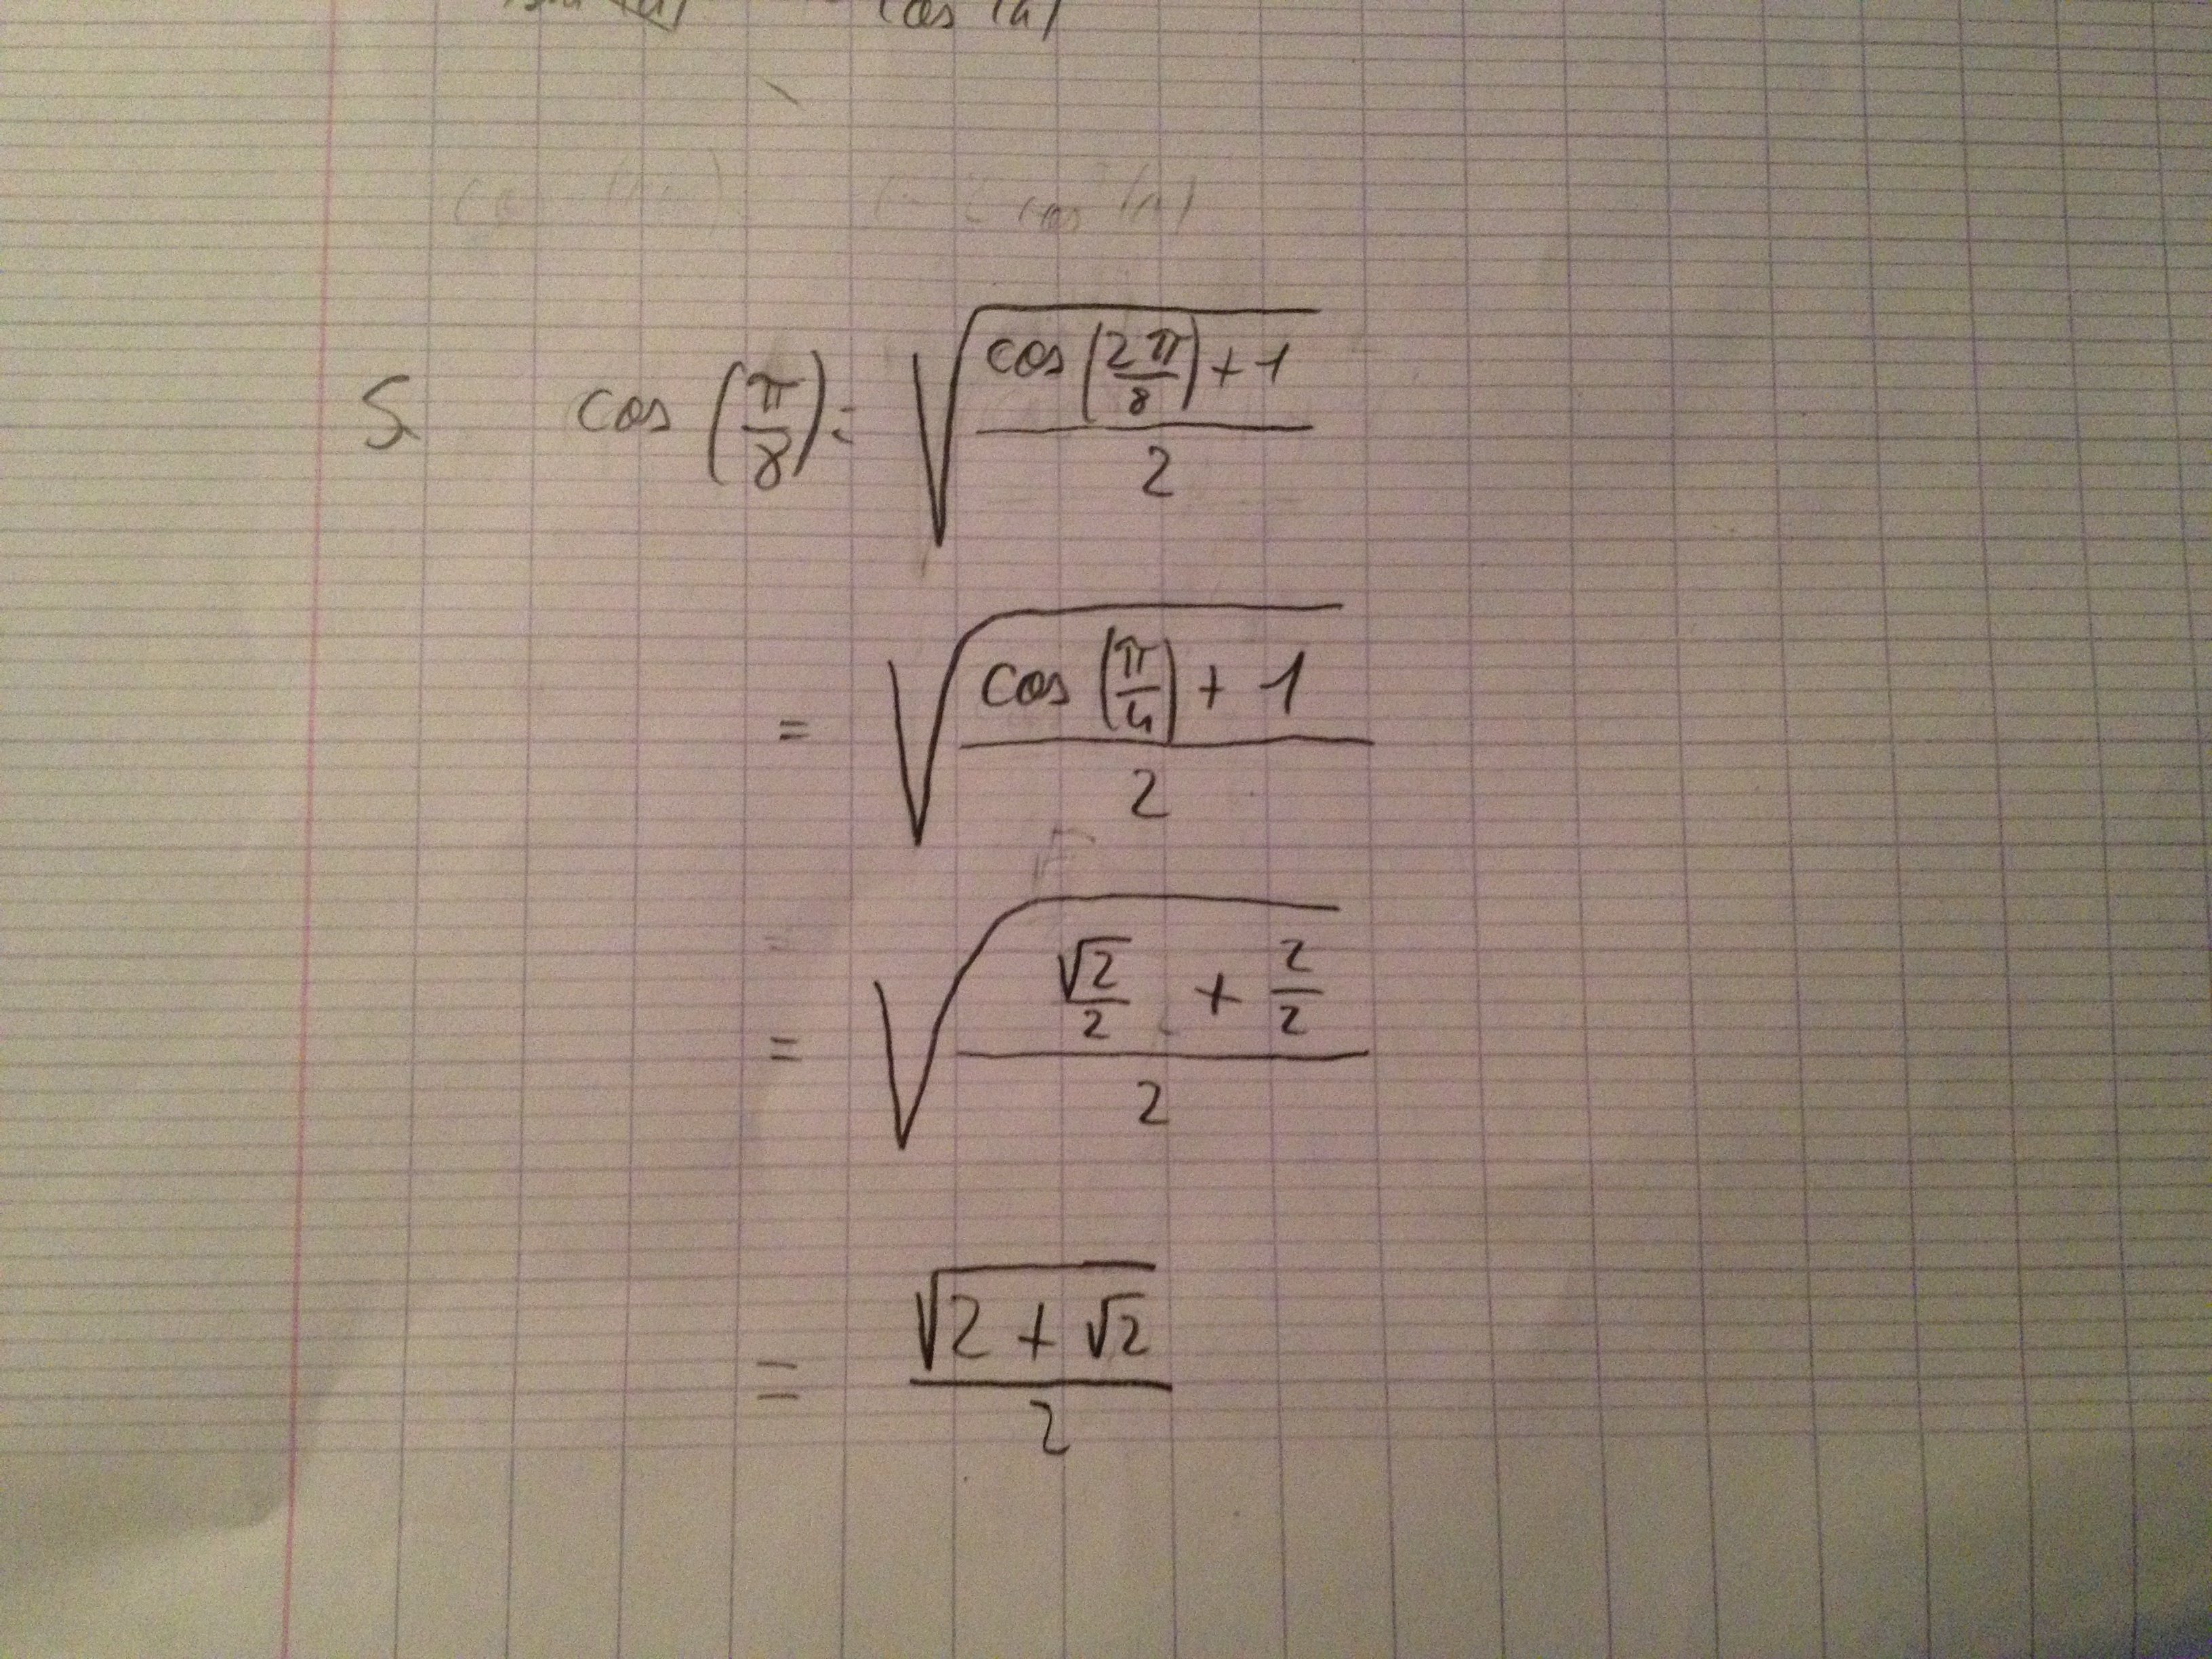 cos (a)
5. cos (π/8) = √((cos (2π/8) + 1)/2)
= √((cos (π/4) + 1)/2)
= √((√2/2 + 2/2)/2)
= √(2 + √2)/2